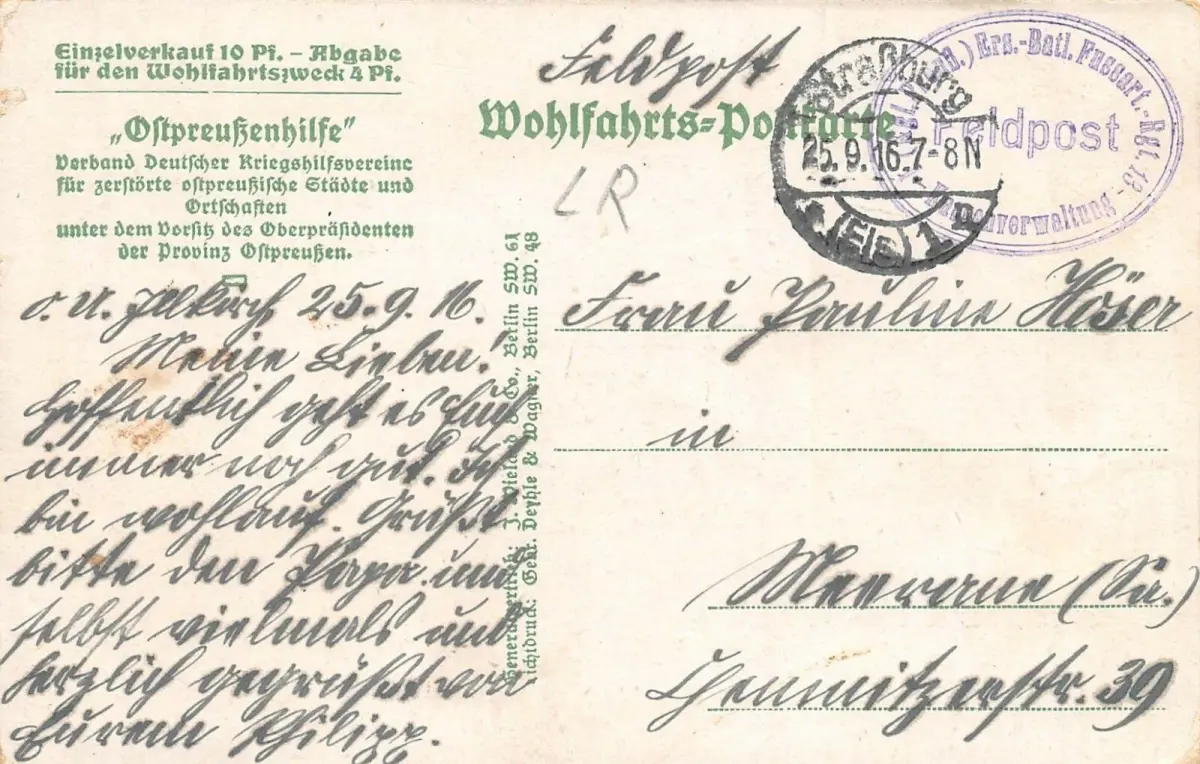 Einzelverkauf 10 Pf. – Abgabe
für den Wohlfahrtszweck 4 Pf.
„Ostpreußenhilfe"
Verband Deutscher Kriegshilfsvereine
für zerstörte ostpreußische Städte und
Ortschaften
unter dem Vorsitz des Oberpräsidenten
der Provinz Ostpreußen.
Feldpost
Wohlfahrts-Postkarte
LR
Straßburg
25.9.16.7-8N
* (Els) 1 n
Ers.-Batl. Fussart.-Rgt. 13
Feldpost
O. U. Illkirch, 25.9.16.
Meine Lieben!
Hoffentlich geht es Euch
immer noch gut. Ich
bin wohlauf. Grüßt
bitte den Papa und
selbst vielmals und
herzlich gegrüßt von
Eurem Philipp.
Berlin SW. 61
Lichtdruck: Gebr. Deyhle & Wagner, Berlin SW. 48
Frau Pauline Höser
in
Meerane (Sa.)
Chemnitzerstr. 39